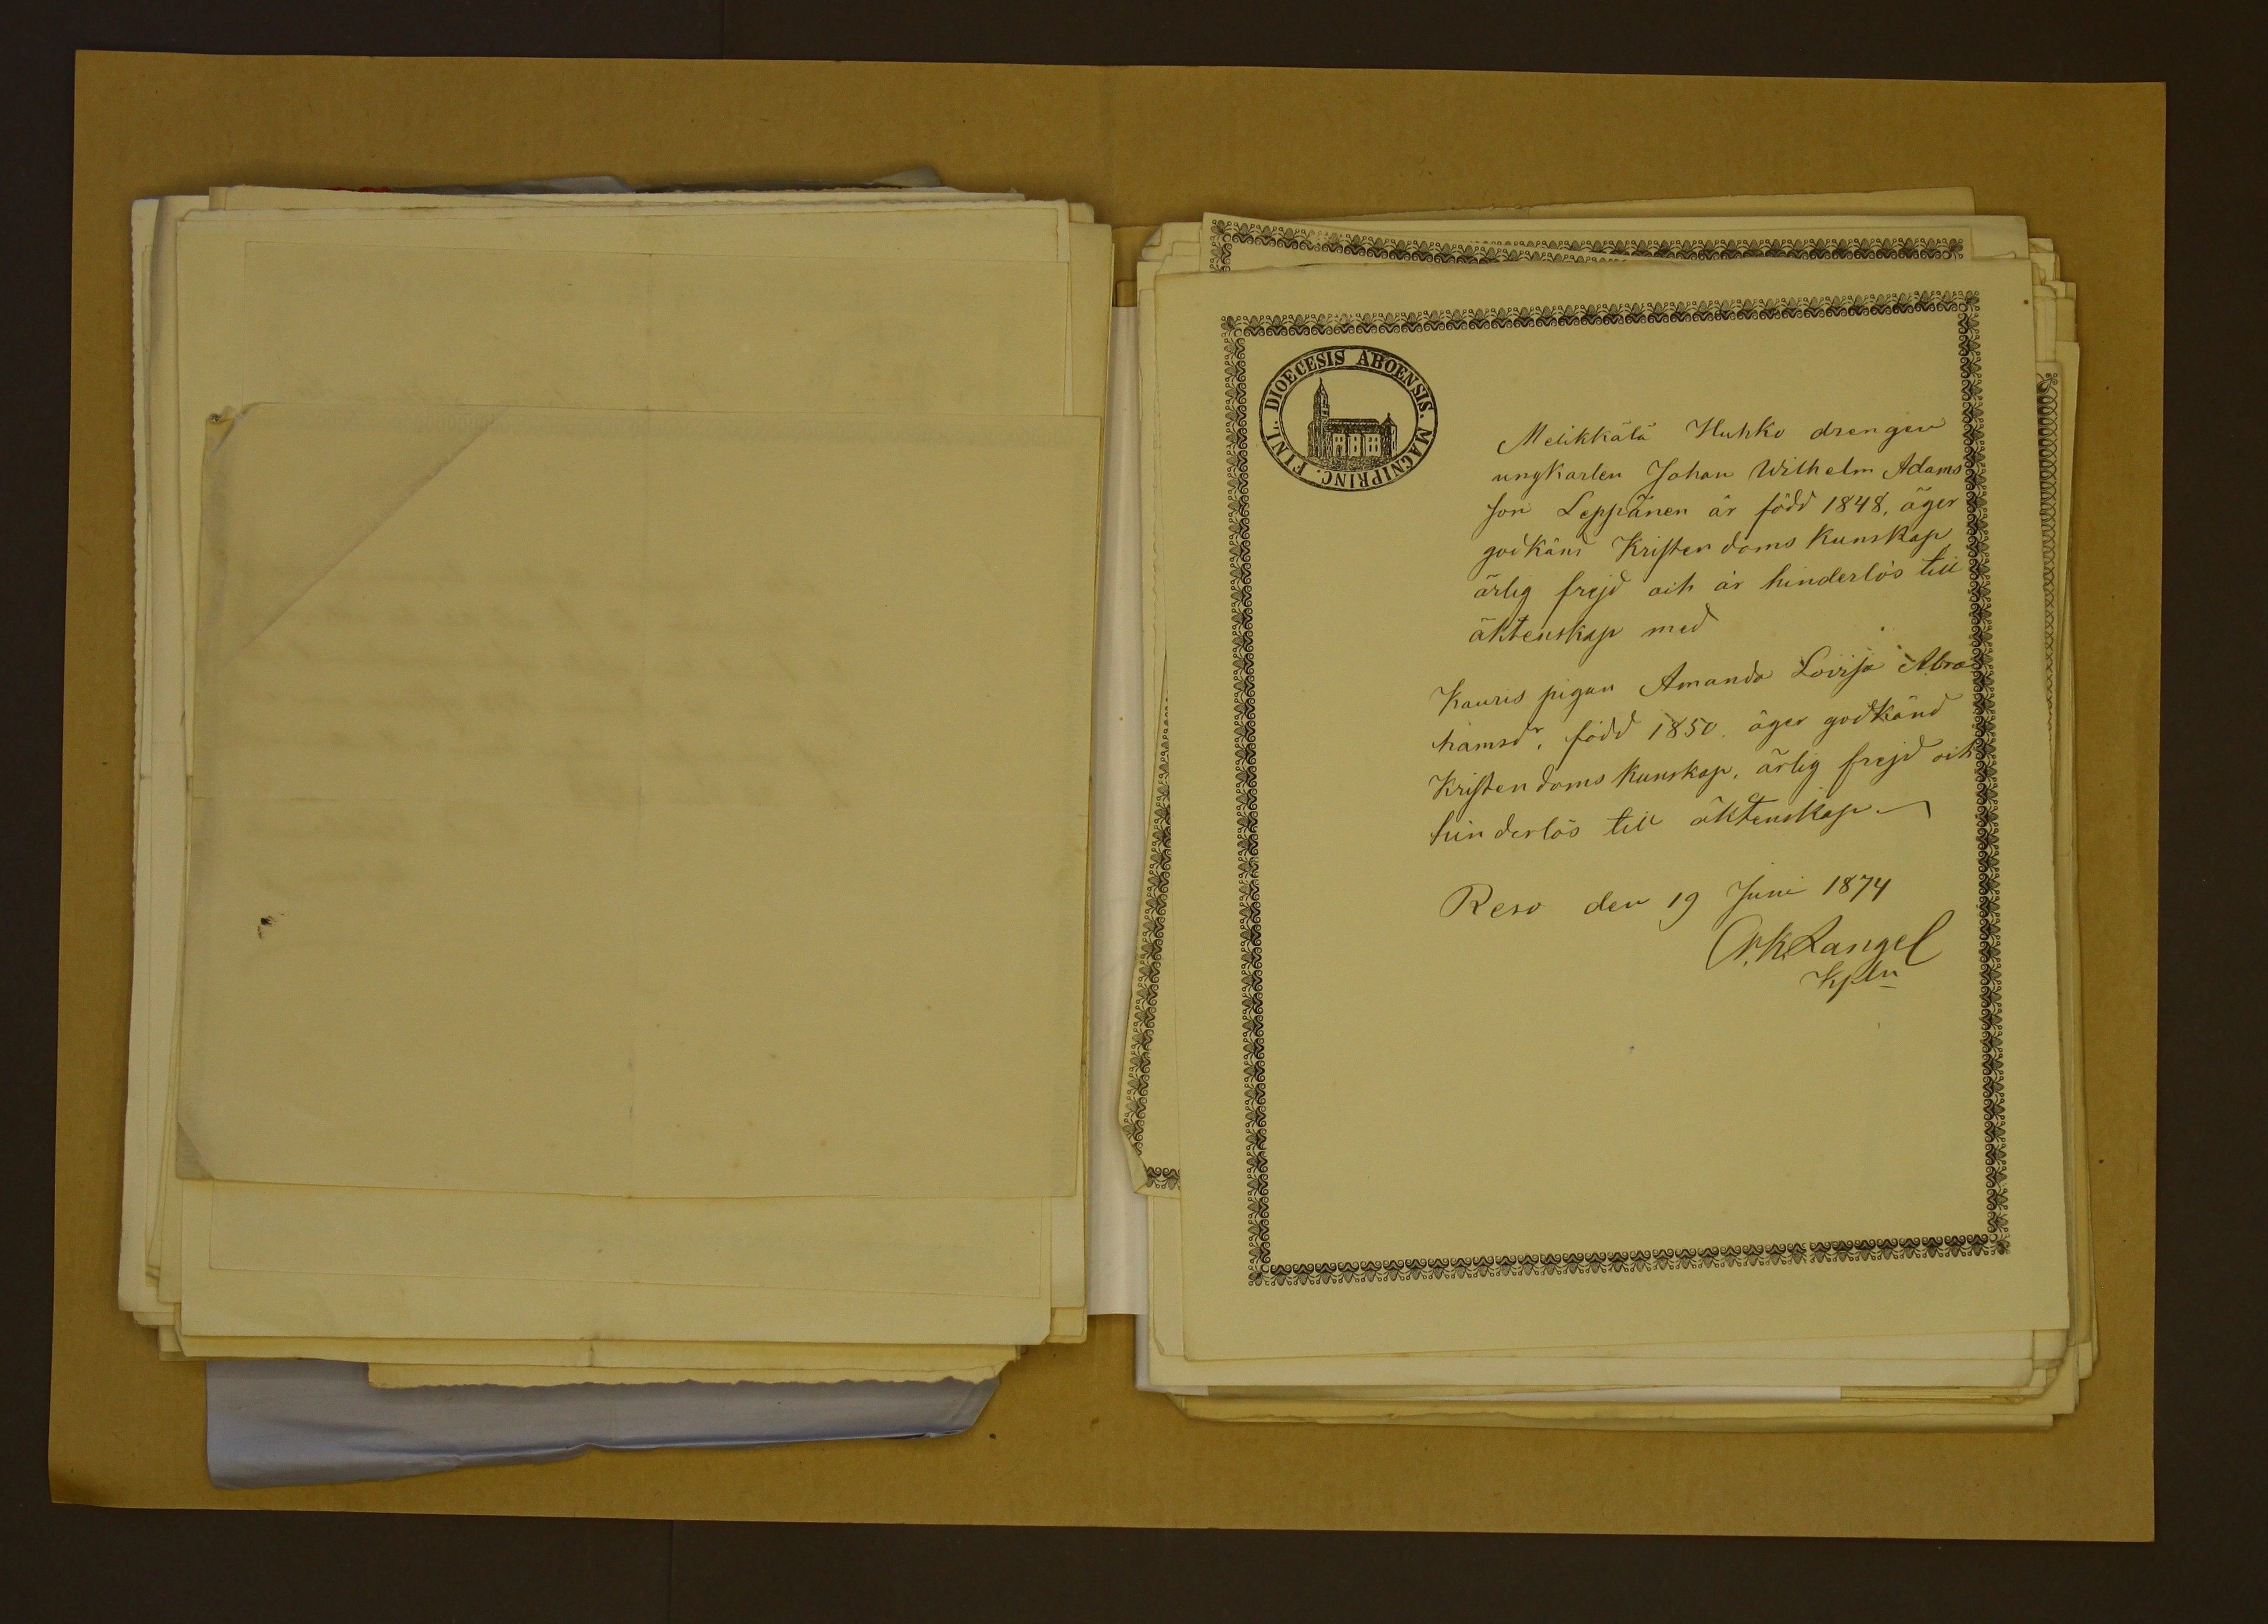 DIOECESIS ABOENSIS. MAGNIPRINC. FINL.
Melikkälä Huhko drengen
ungkarlen Johan Wilhelm Adams
son Leppänen är född 1848, äger
godkänd Kristendoms Kunskap
ärlig frejd och är hinderlös till
äktenskap med
Kauris pigan Amanda Lovisa Abra
hamsdr, född 1850. äger godkänd
Kristendoms Kunskap, ärlig frejd och
hinderlös till äktenskap.
Reso den 19 Juni 1874
Langel
Kpln